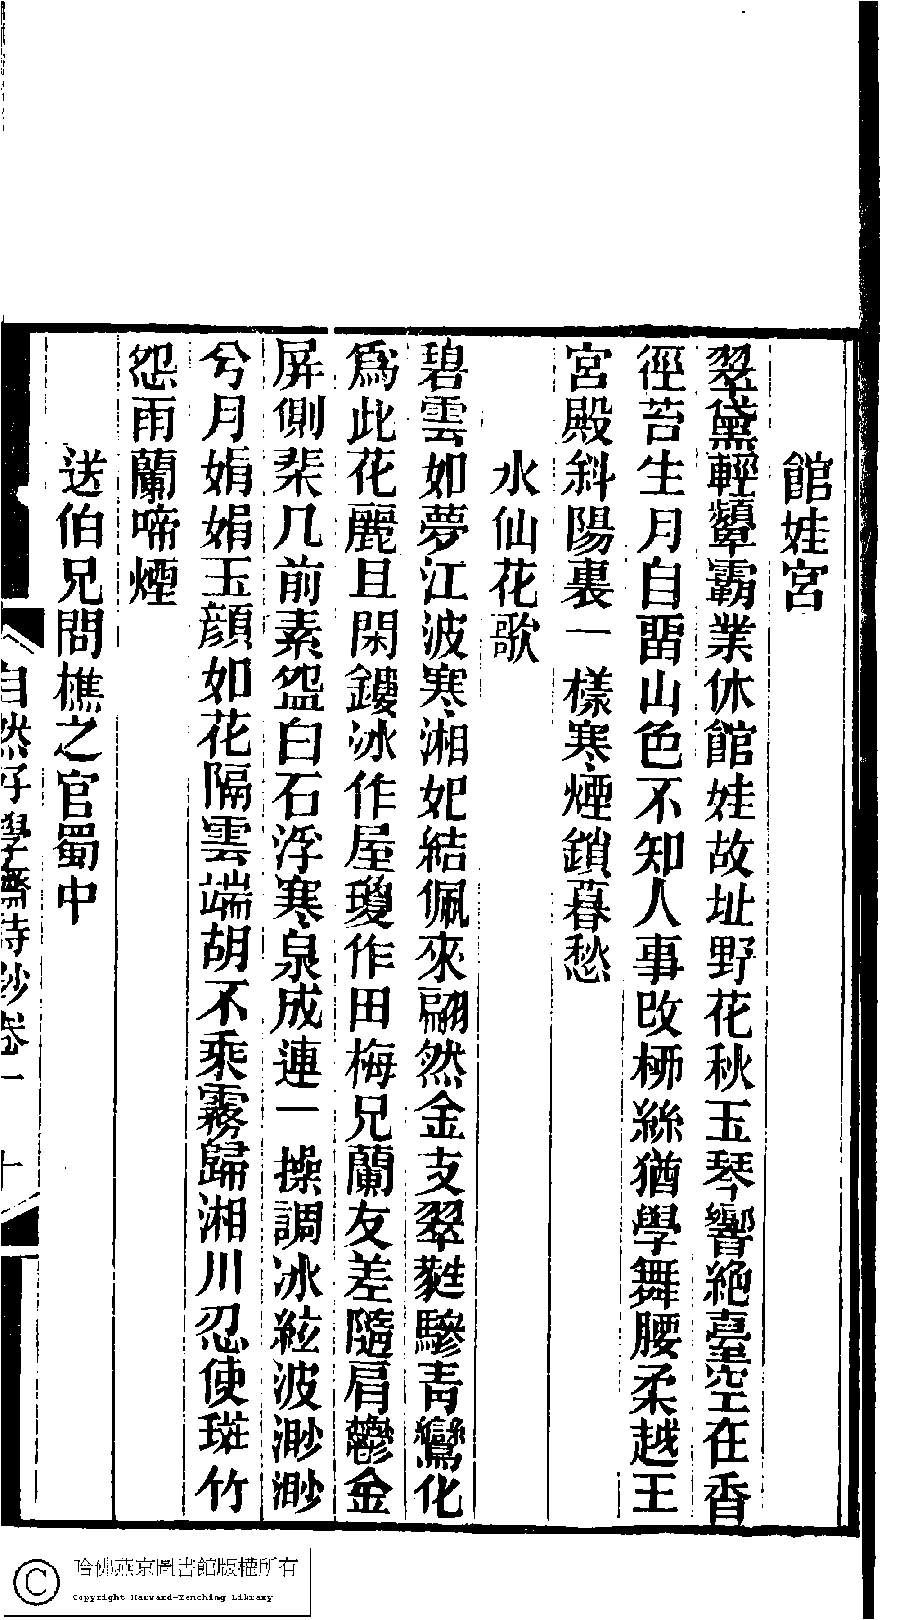 館娃宮
翠黛輕顰霸業休館娃故址野花秋玉琴響絕臺空在香
徑苔生月自畱山色不知人事改桺絲猶學舞腰柔越王
宮殿斜陽裏一樣寒煙鎖暮愁
水仙花歌
碧雲如夢江波寒湘妃結佩來翩然金支翠蕤驂青鸞化
爲此花麗且閑鏤冰作屋瓊作田梅兄蘭友差隨肩鬱金
屏側棐几前素盌白石浮寒泉成連一操調冰絃波渺渺
兮月娟娟玉顏如花隔雲端胡不乘霧歸湘川忍使斑竹
怨雨蘭啼煙
送伯兄問樵之官蜀中
自然好學齋詩鈔卷一 十
哈佛燕京圖書館版權所有
Copyright Harvard-Yenching Library